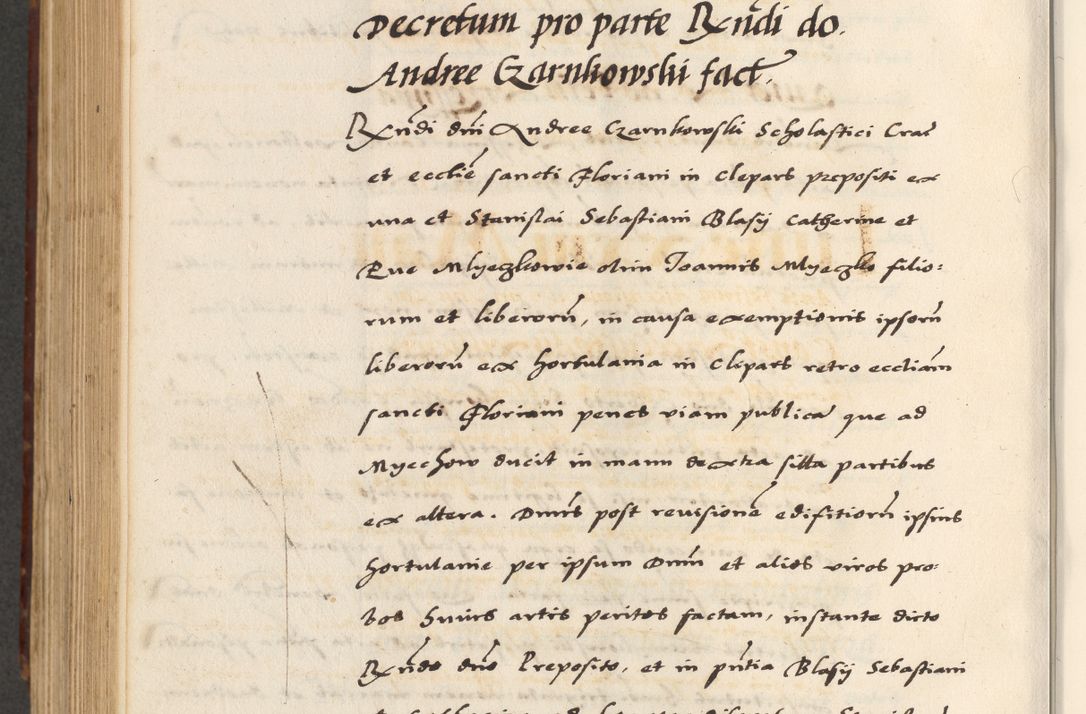 Decretum pro parte Rndi do.
Andree Czarnkowski fact.
Rndi dni Andree Czarnkowski Scholastici Crac
et ecclie sancti Floriani in Clepars prepositi ex
una et Stanislai Sebastiani Blasij Catherine et
Eue Mlyeczkowie olim Joannis Mlyeczko filio:
rum et liberoru, in causa exemptionis ipsoru
liberoru ex hortulania in Clepars retro eccliam
sancti Floriani penes viam publica que ad
Myechow ducit in manu dextra sitta partibus
ex altera. Dnus post reuisione edifitioru ipsius
hortulanie per ipsum Dnm et alios viros pro:
bos huius artis peritos factam, instante dicto
Rndo dno Preposito, et in pntia Blasij Sebastiani